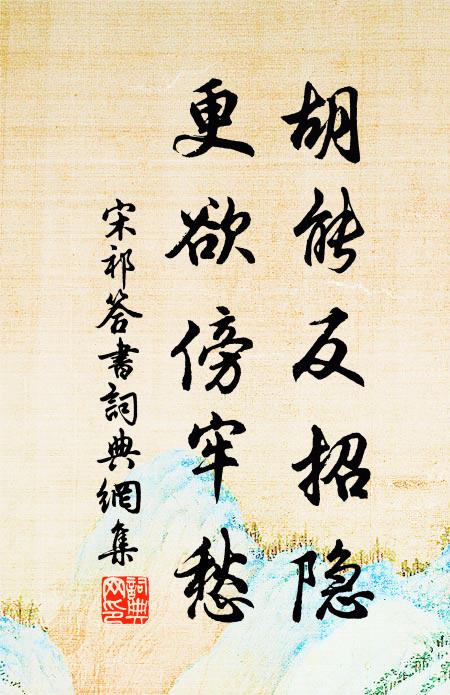 胡能反招隐
更欲傍牢愁
宋祁答書詞典網集
詞典网印